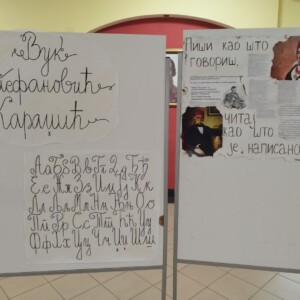 Вук
Стефановић
Караџић
Аа Бб Вв Гг Дд Ђђ
Ее Жж Зз Ии Јј Кк
Лл Љљ Мм Нн Њњ Оо
Пп Рр Сс Тт Ћћ Уу
Фф Хх Цц Чч Џџ Шш
Пиши као што
говориш,
читај
као што
је написано